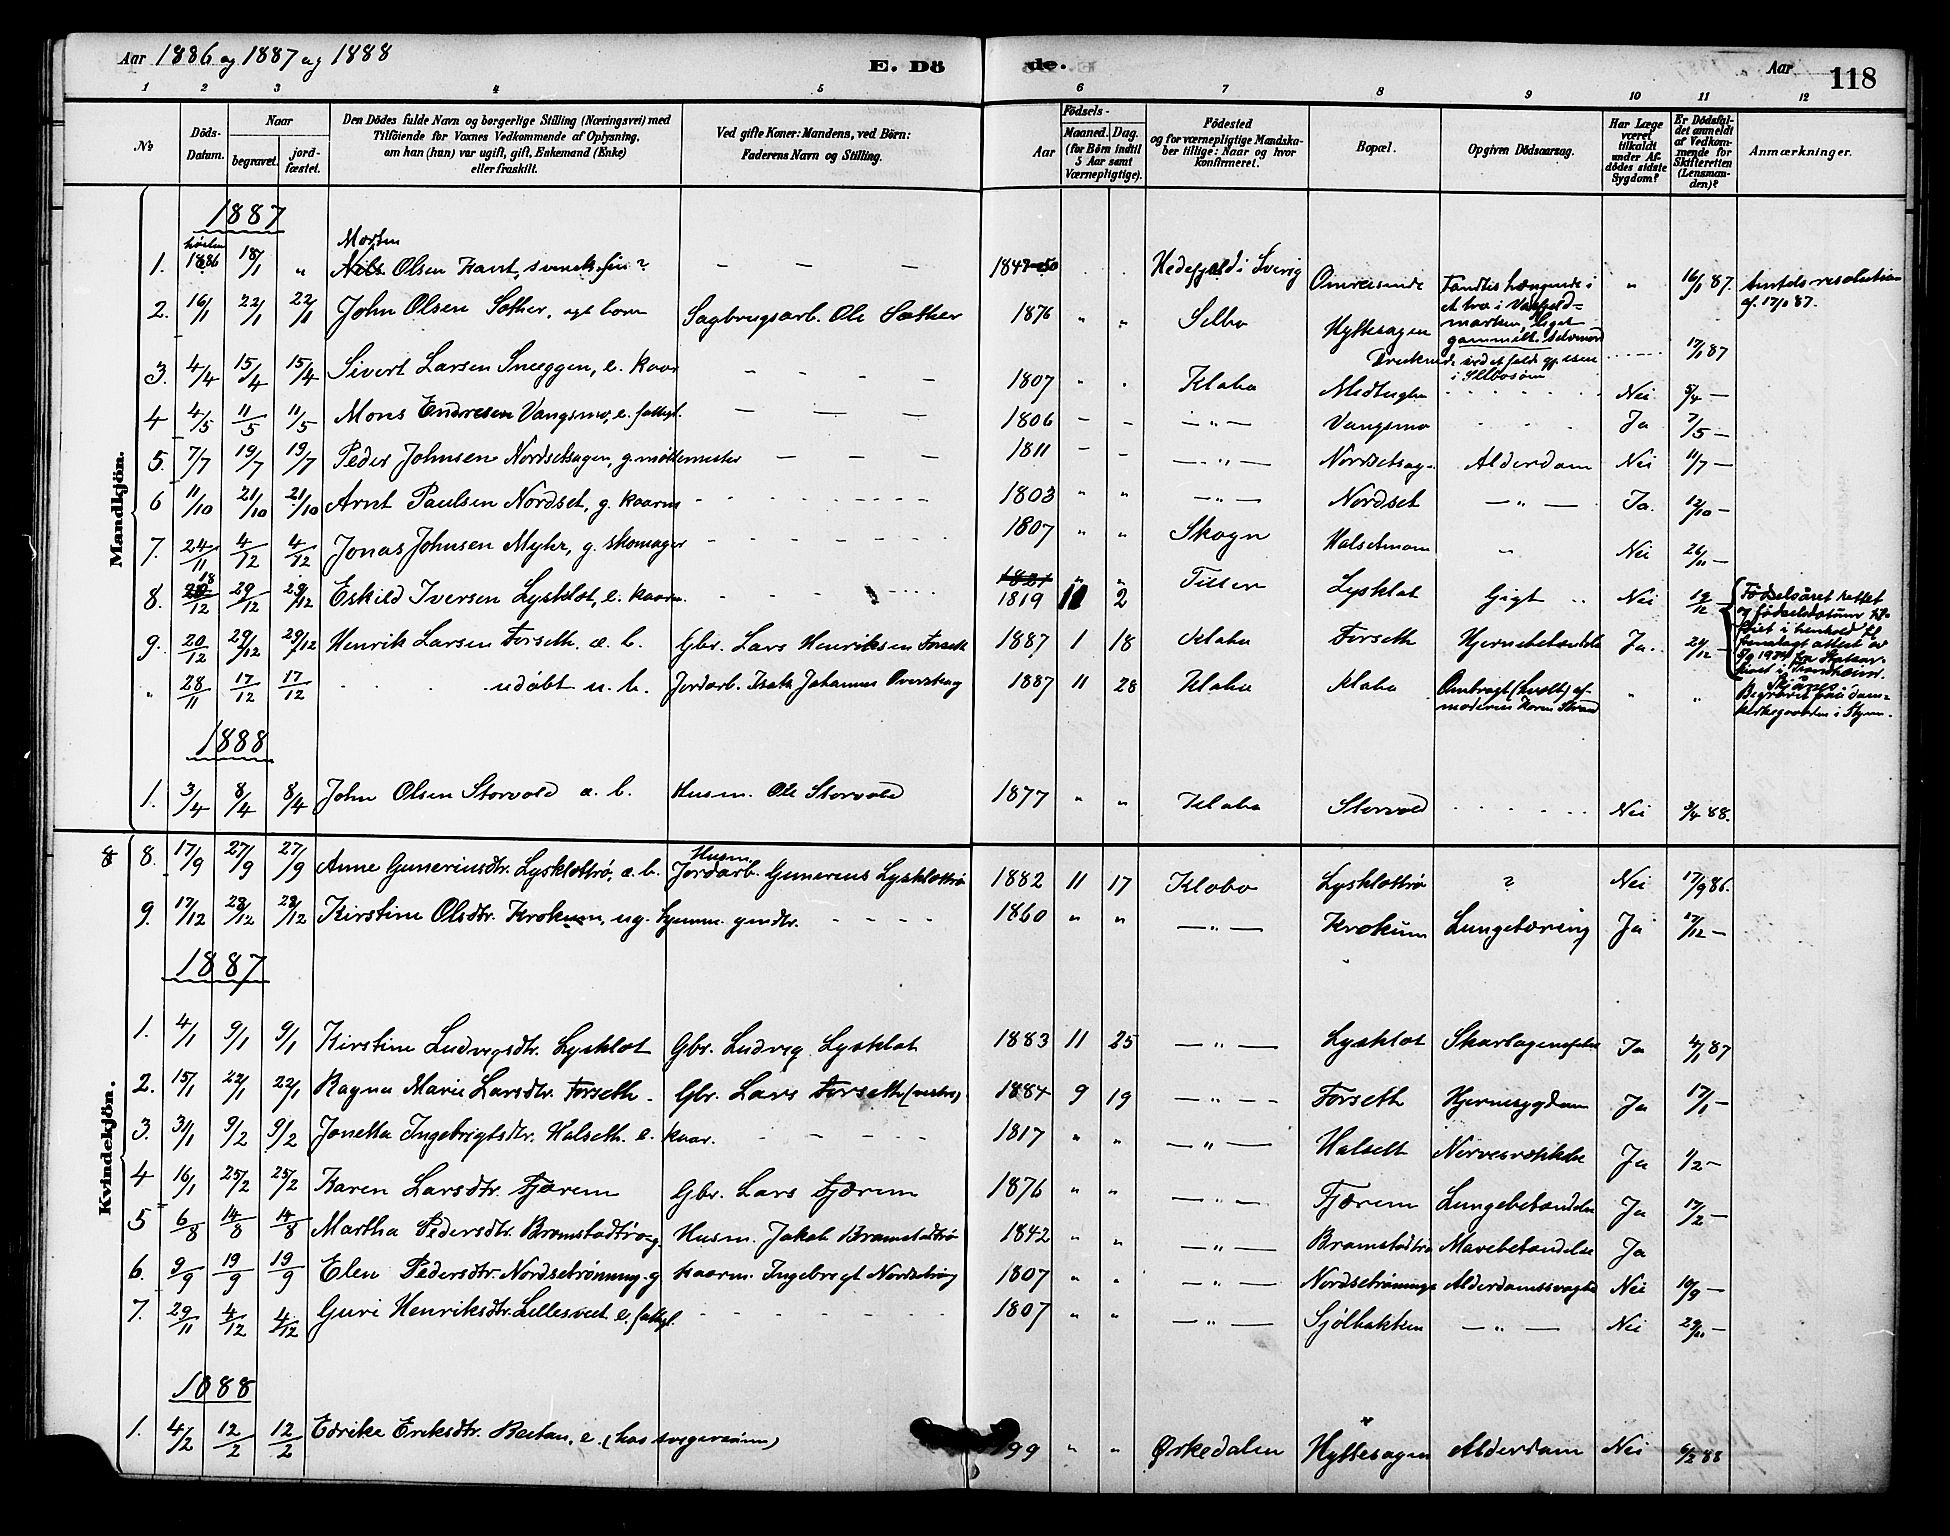 Aar 1886 og 1887 og 1888
E. Döde.
Aar
118
1 2 3 4 5 6 7 8 9 10 11 12
No
Döds-Datum.
Naar
begravet.
jordfæstet.
Den Dödes fulde Navn og borgerlige Stilling (Næringsvei) med
Tilföiende for Voxnes Vedkommende af Oplysning,
om han (hun) var ugift, gift, Enkemand (Enke)
eller fraskilt.
Ved gifte Koner: Mandens, ved Börn:
Faderens Navn og Stilling.
Födsels-
Aar
Maaned. Dag.
(for Börn indtil
5 Aar samt
Værnepligtige).
Födested
og for værnepligtige Mandskaber tillige: Naar og hvor
konfirmeret.
Bopæl.
Opgiven Dödsaarsag.
Har Læge
været
tilkaldt
under Afdödes sidste
Sygdom?
Er Dödsfaldet anmeldt
af Vedkommende for
Skifteretten
(Lensmanden)?
Anmærkninger.
Mandkjön.
1887
1. høsten 1886 18/1 " Morten Nils Olsen Kant, svensk fin? — — — Hedefjeld i Sverig Omreisende Fandtes hængende i et træ " 16/1 87. Amtets resolution af 17/1 87.
2. 16/1 22/1 22/1 John Olsen Sæther, ægt barn Sagbrugsarb. Ole Sæther 1876 " " Selbu Hyttesagen 17/1 87
3. 4/4 15/4 15/4 Sivert Larsen Sneggen, e. kaar — — — — 1807 " " Klæbu Nei 5/4 —
4 4/5 11/5 11/5 Mons Endresen Vangsmo, e. fattigl. — — — 1806 — — — " — Vangsmo Ja 7/5 —
5. 7/7 19/7 19/7 Peder Johnsen Nordsetsagen, g. møllemester — — — 1811 — — — " — Nordsetsag- Alderdom Nei 11/7 —
6 11/10 21/10 21/10 Arnt Paulsen Nordset, g. kaarm 1803 " " — " — Nordset — " — Ja. 12/10 —
7. 24/11 4/12 4/12 Jonas Johnsen Myhr, g. skomager 1807 " " Skogn Halsetmoen " Nei 26/11 —
8. 18/12 29/12 29/12 Eskild Iversen Lysklæt, e. kaarm. 1821 1819 11 2 Tiller Lysklæt Gigt Nei 19/12 — Fødselsåret rettet og fødselsdatum tilføiet i henhold til
9. 20/12 29/12 29/12 Henrik Larsen Forseth æ. b. Gbr. Lars Henriksen Forseth 1887 1 18 Klæbu Forseth Hjernebetændelse Ja. 21/12 —
" 28/11 17/12 17/12 udøbt u. b. Jordarb. Isak Johannes Overskog 1887 11 28 Klæbu Klæbu Ombragt (kvalt) af moderen Karen Strand " " Begravet paa domkirkegaarden i Thjem.
1888
1. 3/4 8/4 8/4 John Olsen Storvold æ. b. Husm. Ole Storvold 1877 " " Klæbu Storvold Nei 3/4 88.
Kvindekjön.
8 8. 17/9 27/9 27/9 Anne Gunneriusdtr. Lysklættrø, æ. b. Husm. Jordarb. Gunerius Lysklættrø 1882 11 17 Klæbu Lysklættrø ? Nei 17/9 86.
9. 17/12 28/12 28/12 Kirstine Olsdtr. Krokum, ug. hjemm. gmdtr. 1860 " " — " — Krokum Lungetæring Ja 17/12 —
1887
1. 4/1 9/1 9/1 Kirstine Ludvigsdtr. Lysklæt Gbr. Ludvig Lysklæt 1883 11 25 — " — Lysklæt Skarlagensfeber Ja 4/1 87
2. 15/1 22/1 22/1 Ragna Marie Larsdtr. Forseth Gbr. Lars Forseth (vestre) 1884 9 19 — " — Forseth Hjernesygdom Ja 17/1 —
3. 31/1 9/2 9/2 Jonetta Ingebrigtsdtr. Halseth. e. kaar. — — — — 1817 " " — " — Halsett Ja 1/2 —
4 16/1 25/2 25/2 Karen Larsdtr. Fjærem Gbr. Lars Fjærem 1876 " " — " — Fjærem Lungebetændelse Ja 17/2 —
5 6/8 14/8 14/8 Martha Pedersdtr. Bromstadtrø g. Husm. Jakob Bromstadtrø 1842 " " — " — Bromstadtrø Mavebetændelse Ja
6. 9/9 19/9 19/9 Elen Pedersdtr. Nordsetrønning. g Kaarm. Ingebrigt Nordsetrøng 1807 " " — " — Nordsetrønnings Alderdomssvaghed Nei 10/9 —
7. 29/11 4/12 4/12 Guri Henriksdtr. Lillesvet e. fattigl. 1807 " " — " — Sjølbakken — " — Nei 29/11 —
1888
1. 4/2 12/2 12/2 Edrike Eriksdtr. e. (hos svigersønn) 99 " " Ørkedalen Hyttesagen Alderdom Nei 6/2 88